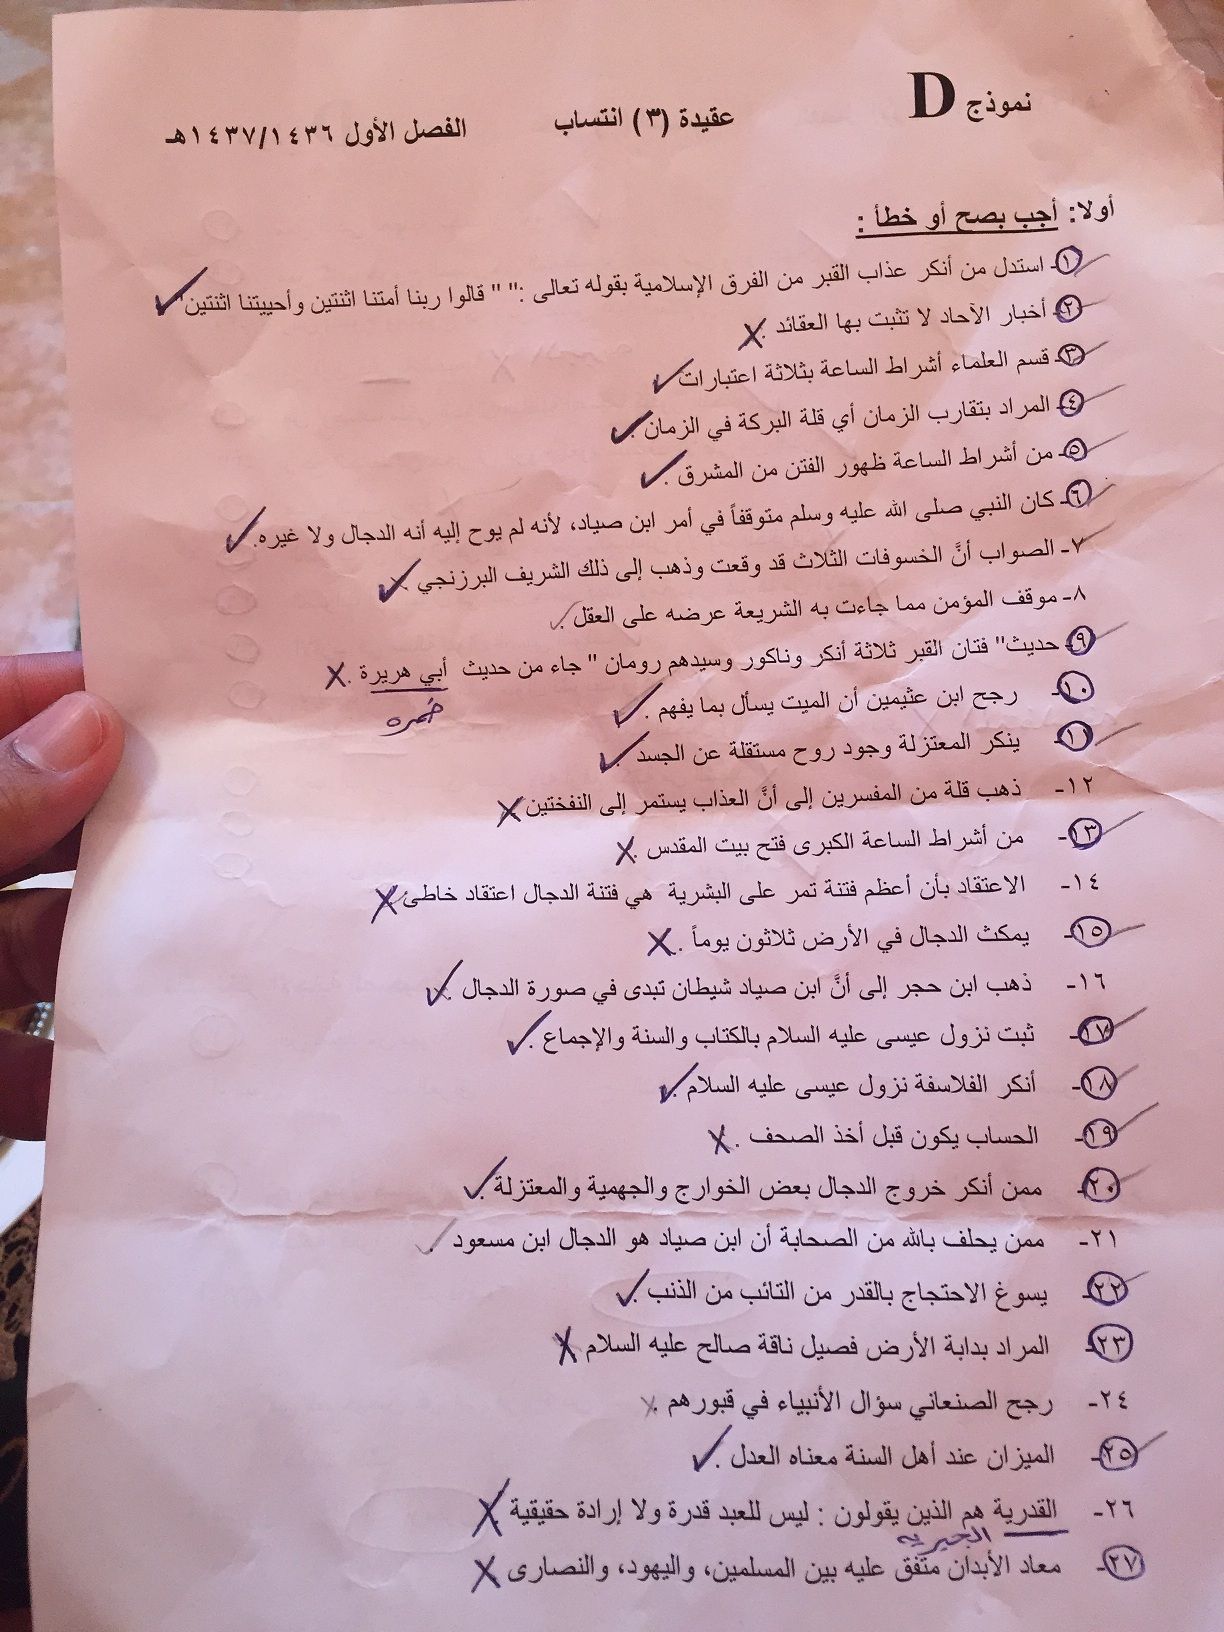 نموذج D
عقيدة (٣) انتساب
الفصل الأول ١٤٣٦/١٤٣٧هـ
أولا: أجب بصح أو خطأ :
١- استدل من أنكر عذاب القبر من الفرق الإسلامية بقوله تعالى :" " قالوا ربنا أمتنا اثنتين وأحييتنا اثنتين" ✓
٢- أخبار الآحاد لا تثبت بها العقائد . X
٣- قسم العلماء أشراط الساعة بثلاثة اعتبارات ✓
٤- المراد بتقارب الزمان أي قلة البركة في الزمان . ✓
٥- من أشراط الساعة ظهور الفتن من المشرق . ✓
٦- كان النبي صلى الله عليه وسلم متوقفاً في أمر ابن صياد، لأنه لم يوح إليه أنه الدجال ولا غيره. ✓
٧- الصواب أنَّ الخسوفات الثلاث قد وقعت وذهب إلى ذلك الشريف البرزنجي . ✓
٨- موقف المؤمن مما جاءت به الشريعة عرضه على العقل . ✓
٩- حديث" فتان القبر ثلاثة أنكر وناكور وسيدهم رومان " جاء من حديث أبي هريرة . X
ضمره
١٠- رجح ابن عثيمين أن الميت يسأل بما يفهم . ✓
١١- ينكر المعتزلة وجود روح مستقلة عن الجسد ✓
١٢- ذهب قلة من المفسرين إلى أنَّ العذاب يستمر إلى النفختين X
١٣- من أشراط الساعة الكبرى فتح بيت المقدس . X
١٤- الاعتقاد بأن أعظم فتنة تمر على البشرية هي فتنة الدجال اعتقاد خاطئ X
١٥- يمكث الدجال في الأرض ثلاثون يوماً . X
١٦- ذهب ابن حجر إلى أنَّ ابن صياد شيطان تبدى في صورة الدجال . ✓
١٧- ثبت نزول عيسى عليه السلام بالكتاب والسنة والإجماع . ✓
١٨- أنكر الفلاسفة نزول عيسى عليه السلام . ✓
١٩- الحساب يكون قبل أخذ الصحف . X
٢٠- ممن أنكر خروج الدجال بعض الخوارج والجهمية والمعتزلة . ✓
٢١- ممن يحلف بالله من الصحابة أن ابن صياد هو الدجال ابن مسعود . ✓
٢٢- يسوغ الاحتجاج بالقدر من التائب من الذنب . ✓
٢٣- المراد بدابة الأرض فصيل ناقة صالح عليه السلام . X
٢٤- رجح الصنعاني سؤال الأنبياء في قبورهم . X
٢٥- الميزان عند أهل السنة معناه العدل . ✓
٢٦- القدرية هم الذين يقولون : ليس للعبد قدرة ولا إرادة حقيقية . X
الجبريه
٢٧- معاد الأبدان متفق عليه بين المسلمين، واليهود، والنصارى X